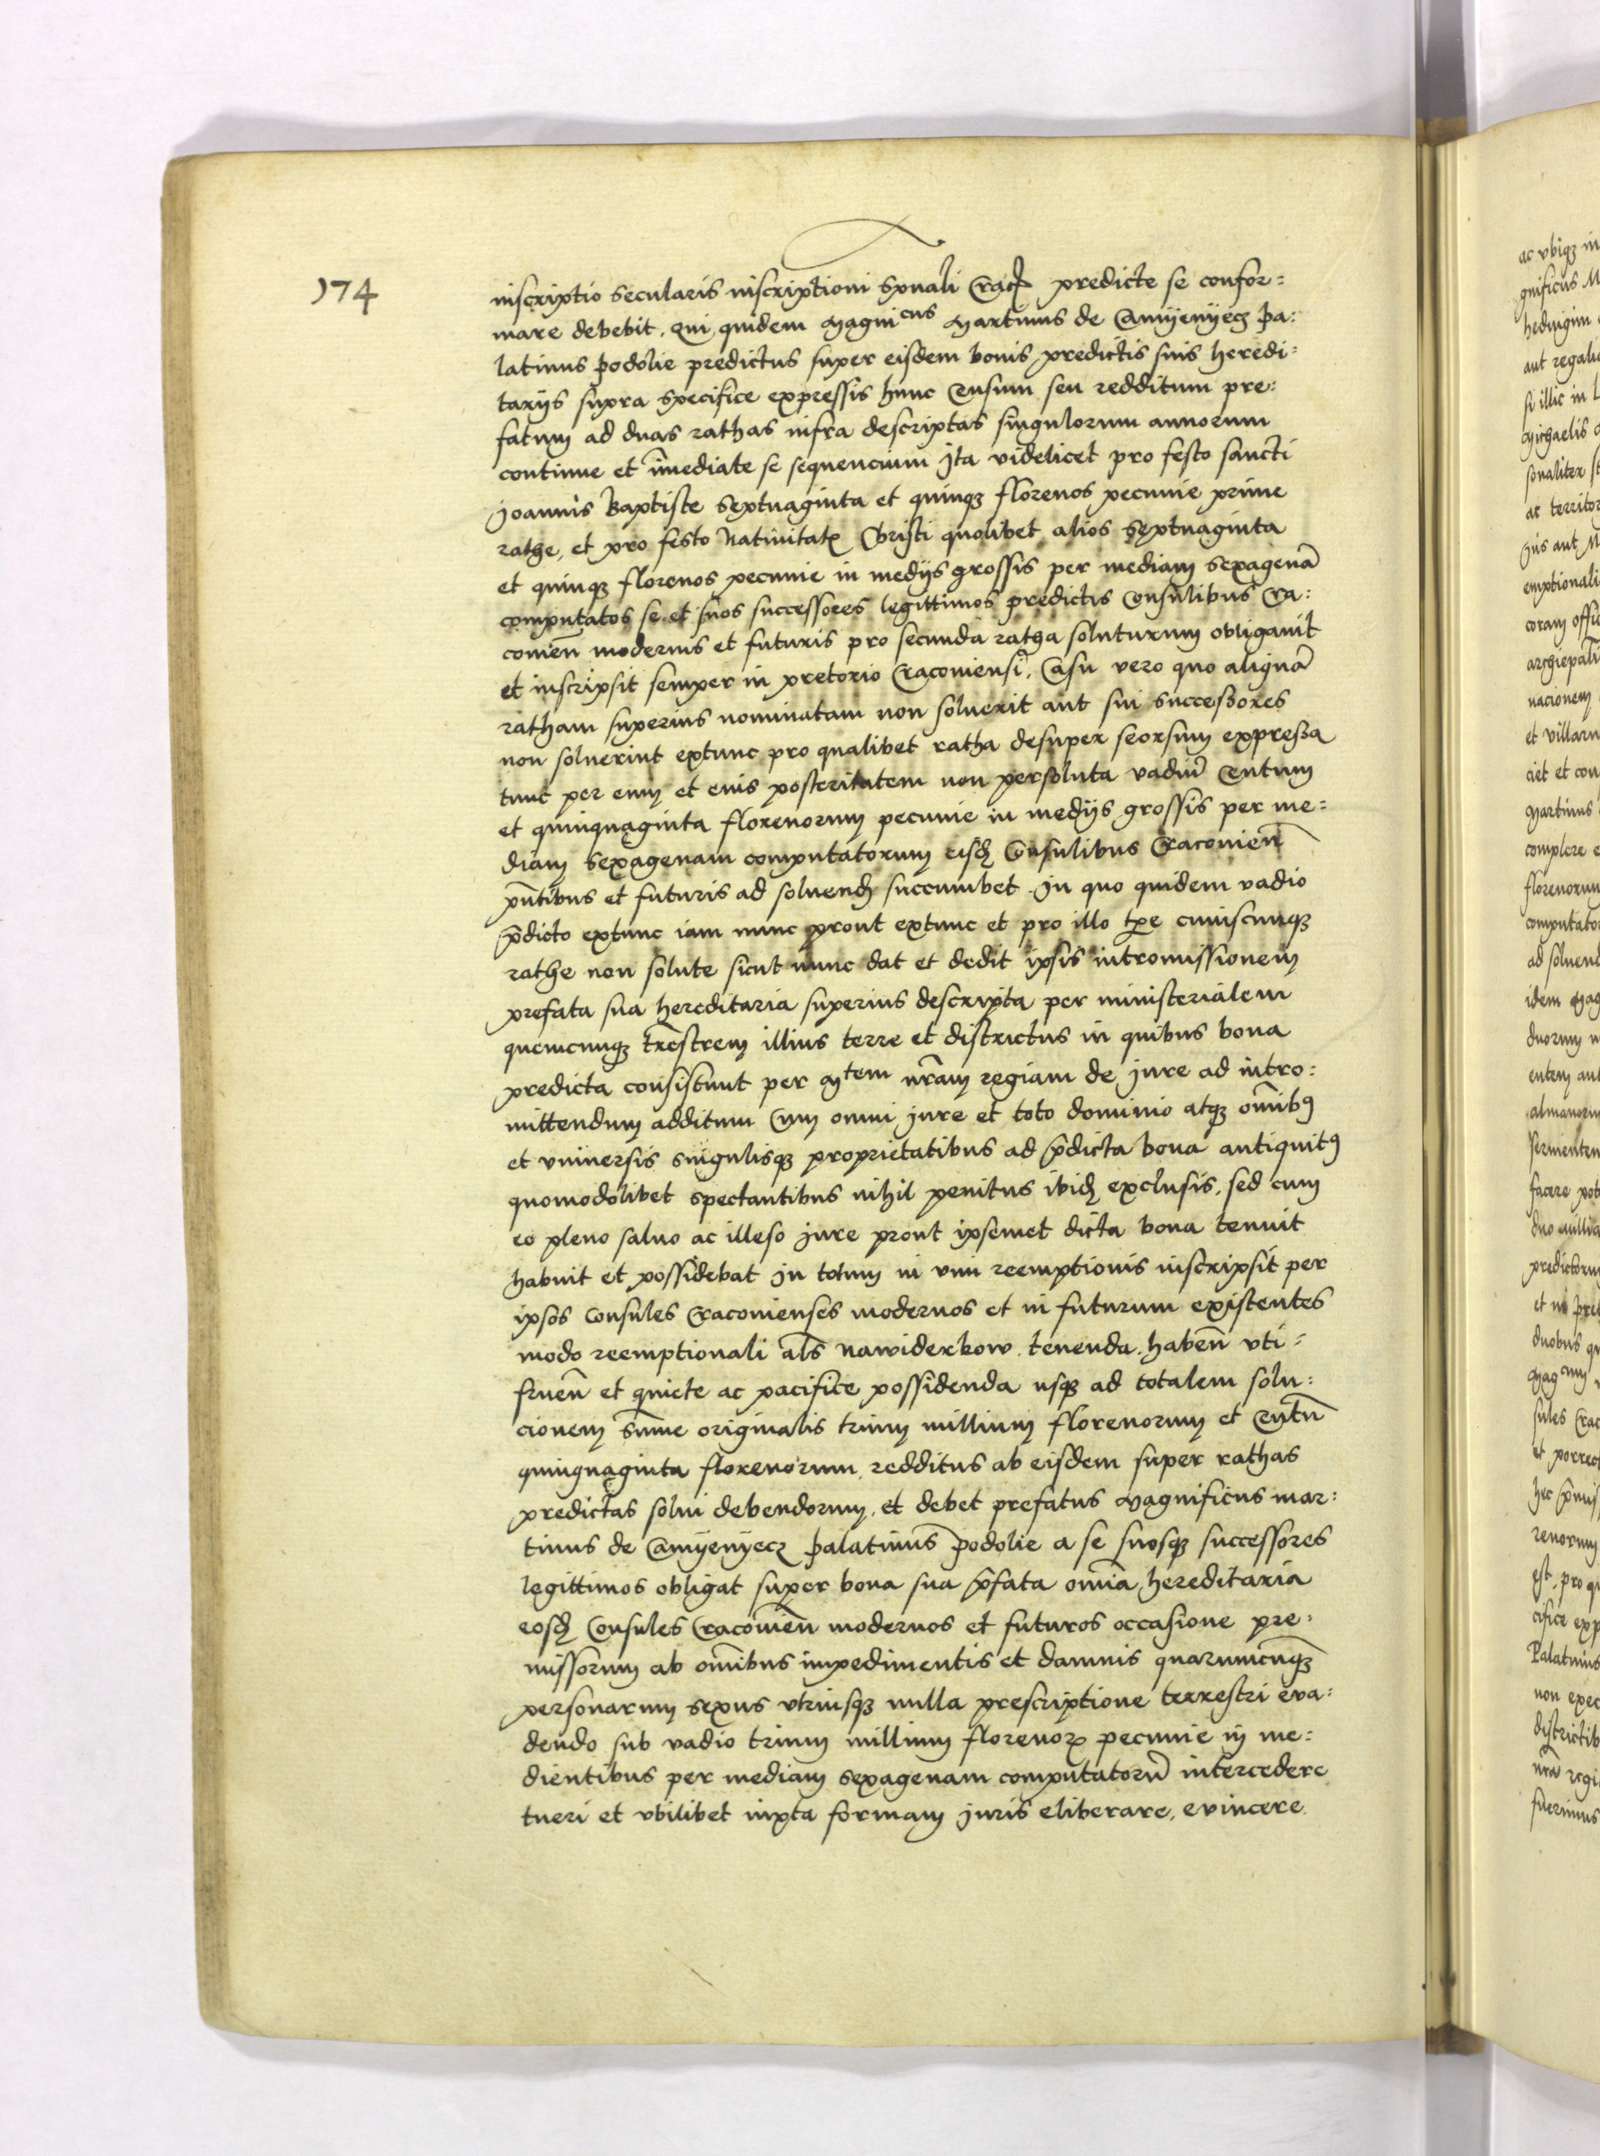 174
inscriptio secularis inscriptioni spuali predicte se confor=
mare debebit. Qui quidem Magnicus Martinus de Camyenyecz pa=
latinus podolie predictus super eisdem bonis predictis suis heredi=
tarijs supra specifice expressis hunc Censum seu redditum pre=
fatum ad duas rathas infra descriptas singulorum annorum
continue et īmediate se sequencium Ita videlicet pro festo sancti
Joannis Baptiste septuaginta et quinqз florenos pecunie prime
rathe, et pro festo Natiuitatꝭ Christi quolibet alios septuaginta
et quinqз florenos pecunie in medijs grossis per mediam sexagenā
computatos se et suos successores legittimos predictis Consulibus Cra=
couien̄ modernis et futuris pro secunda ratha soluturum obligauit
et inscripsit semper in pretorio Cracouiensi, Casu vero quo aliquā
ratham superius nominatam non soluerit aut sui successores
non soluerint extunc pro qualibet ratha desuper seorsum expressa
tunc per eum et eius posteritatem non persoluta vadiū Centum
et quinquaginta florenorum pecunie in medijs grossis per me=
diam sexagenam computatorum eisđ Consulibus Cracouien̄
pn̄tibus et futuris ad soluenđ succumbet. In quo quidem vadio
p̄dicto extunc iam nunc prout extunc et pro illo tpe cuiuscunqз
rathe non solute sicut nunc dat et dedit ipsis intromissionem
prefata sua hereditaria superius descripta per ministerialem
quemcunqз trēstrem illius terre et districtus in quibus bona
predicta consistunt per Mtem nr̄am regiam de jure ad intro=
mittendum additum Cum omni jure et toto dominio atqз om̄ibꝯ
et vniuersis singulisqз proprietatibus ad p̄dicta bona antiquitꝯ
quomodolibet spectantibus nihil penitus ibiđ exclusis, sed cum
eo pleno saluo ac illeso jure prout ipsemet dicta bona tenuit
habuit et possidebat In totum in vim reemptionis inscripsit per
ipsos Consules Cracouienses modernos et in futurum existentes
modo reemptionali als̄ nawiderkow. tenenda. haben̄ vti=
fruen̄ et quiete ac pacifice possidenda usqз ad totalem solu=
cionem sūme originalis trium millium florenorum et Centū
quinquaginta florenorum redditus ab eisdem super rathas
predictas solui debendorum, et debet prefatus Magnificus mar=
tinus de Camyenyecz palatinus podolie a se suosqз successores
legittimos obligat super bona sua p̄fata omīa hereditaria
eosđ Consules Cracouien̄ modernos et futuros occasione pre=
missorum ab om̄ibus impedimentis et damnis quarumcunqз
personarum sexus vtriusqз nulla prescriptione terrestri eua=
dendo sub vadio trium millium florenorꝝ pecunie in me=
dientibus per mediam sexagenam computatorū intercedere
tueri et vbilibet iuxta formam juris eliberare, euincere